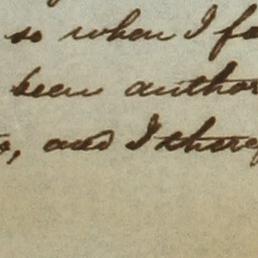 so when I fo
been author
o, and I there